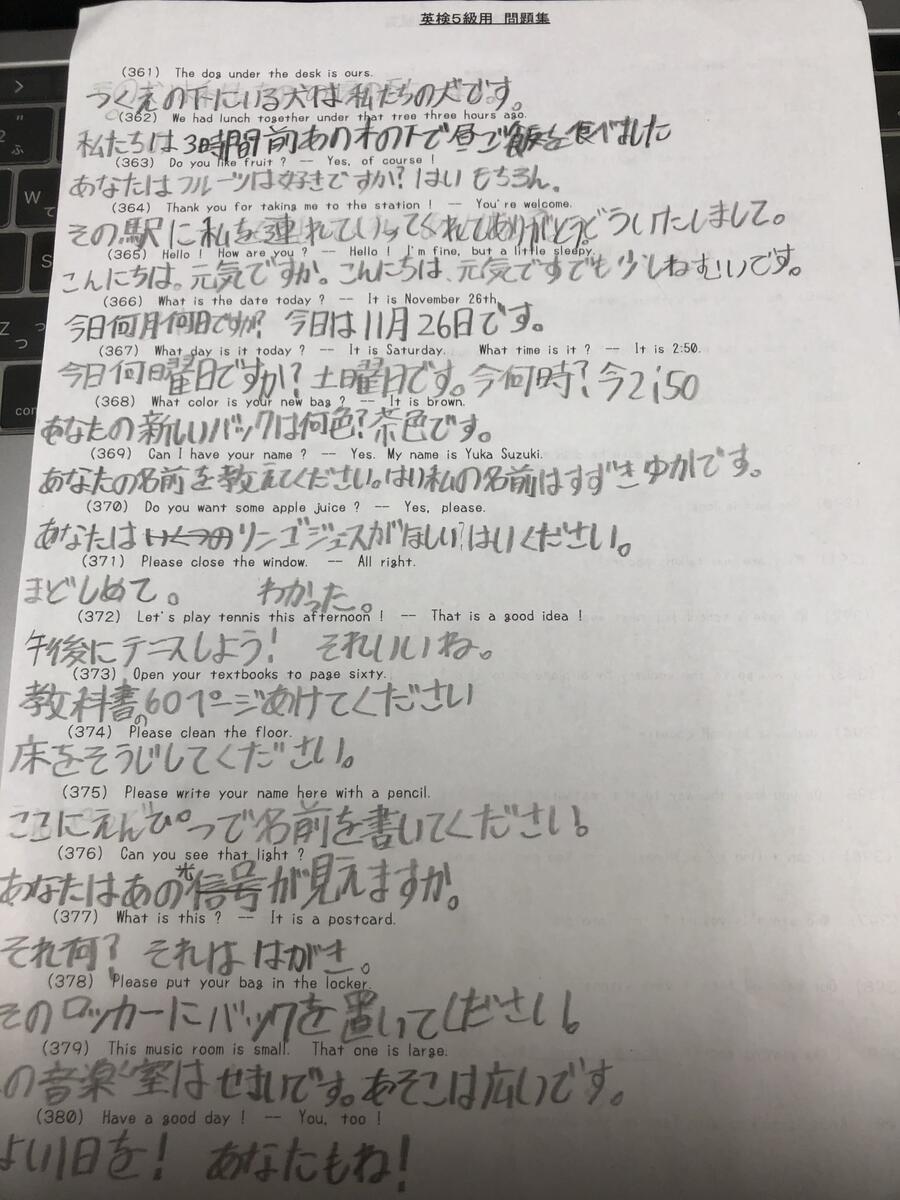 英検5級用 問題集
(361) The dog under the desk is ours.
つくえの下にいる犬は私たちの犬です。
(362) We had lunch together under that tree three hours ago.
私たちは3時間前あの木の下で昼ご飯を食べました
(363) Do you like fruit ? -- Yes, of course !
あなたはフルーツは好きですか? はい もちろん。
(364) Thank you for taking me to the station ! -- You're welcome.
その駅に私を連れていってくれてありがとう。どういたしまして。
(365) Hello ! How are you ? -- Hello ! I'm fine, but a little sleepy.
こんにちは。元気ですか。こんにちは、元気ですでも少しねむいです。
(366) What is the date today ? -- It is November 26th.
今日何月何日ですか? 今日は11月26日です。
(367) What day is it today ? -- It is Saturday. What time is it ? -- It is 2:50.
今日何曜日ですか? 土曜日です。今何時? 今2:50
(368) What color is your new bag ? -- It is brown.
あなたの新しいバックは何色? 茶色です。
(369) Can I have your name ? -- Yes. My name is Yuka Suzuki.
あなたの名前を教えてください。はい私の名前はすずきゆかです。
(370) Do you want some apple juice ? -- Yes, please.
あなたは いくつの リンゴジュースがほしい? はいください。
(371) Please close the window. -- All right.
まどしめて。 わかった。
(372) Let's play tennis this afternoon ! -- That is a good idea !
午後にテニスしよう! それいいね。
(373) Open your textbooks to page sixty.
教科書の60ページあけてください
(374) Please clean the floor.
床をそうじしてください。
(375) Please write your name here with a pencil.
ここにえんぴつで名前を書いてください。
(376) Can you see that light ?
光
あなたはあの信号が見えますか。
(377) What is this ? -- It is a postcard.
それ何? それは はがき。
(378) Please put your bag in the locker.
そのロッカーにバックを置いてください。
(379) This music room is small. That one is large.
の音楽室はせまいです。あそこは広いです。
(380) Have a good day ! -- You, too !
よい1日を! あなたもね!